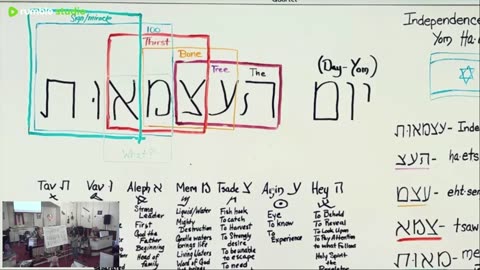 rumble studio
Sign/miracle
100
Thirst
Bone
Tree
The
העצמאות
What?
(Day-Yom)
יום
Independence
Yom Ha
עצמאות - Inde
העצ - ha·ets
עצם - eht·sem
צמא - tsaw
Tav ת
Vav ו
Aleph א
Strong
Leader
First
God the
Father
Beginning
Head of
family
Mem מ
Liquid/Water
Mighty
Destruction
Gentle waters
brings life
Living Waters
Word of God
Tsade צ
Fish hook
To catch
To Harvest
To Strongly
desire
To be unable
to escape
To need
Ayin ע
Eye
To know
To
Experience
Hey ה
To Behold
To Reveal
To Look Upon
To Pay Attention
to what Follows
Holy Spirit
the